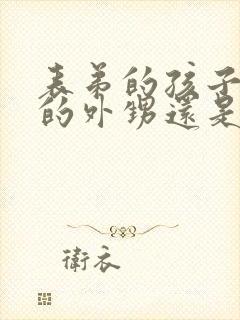 表弟的孩子
的外甥還是
衛衣